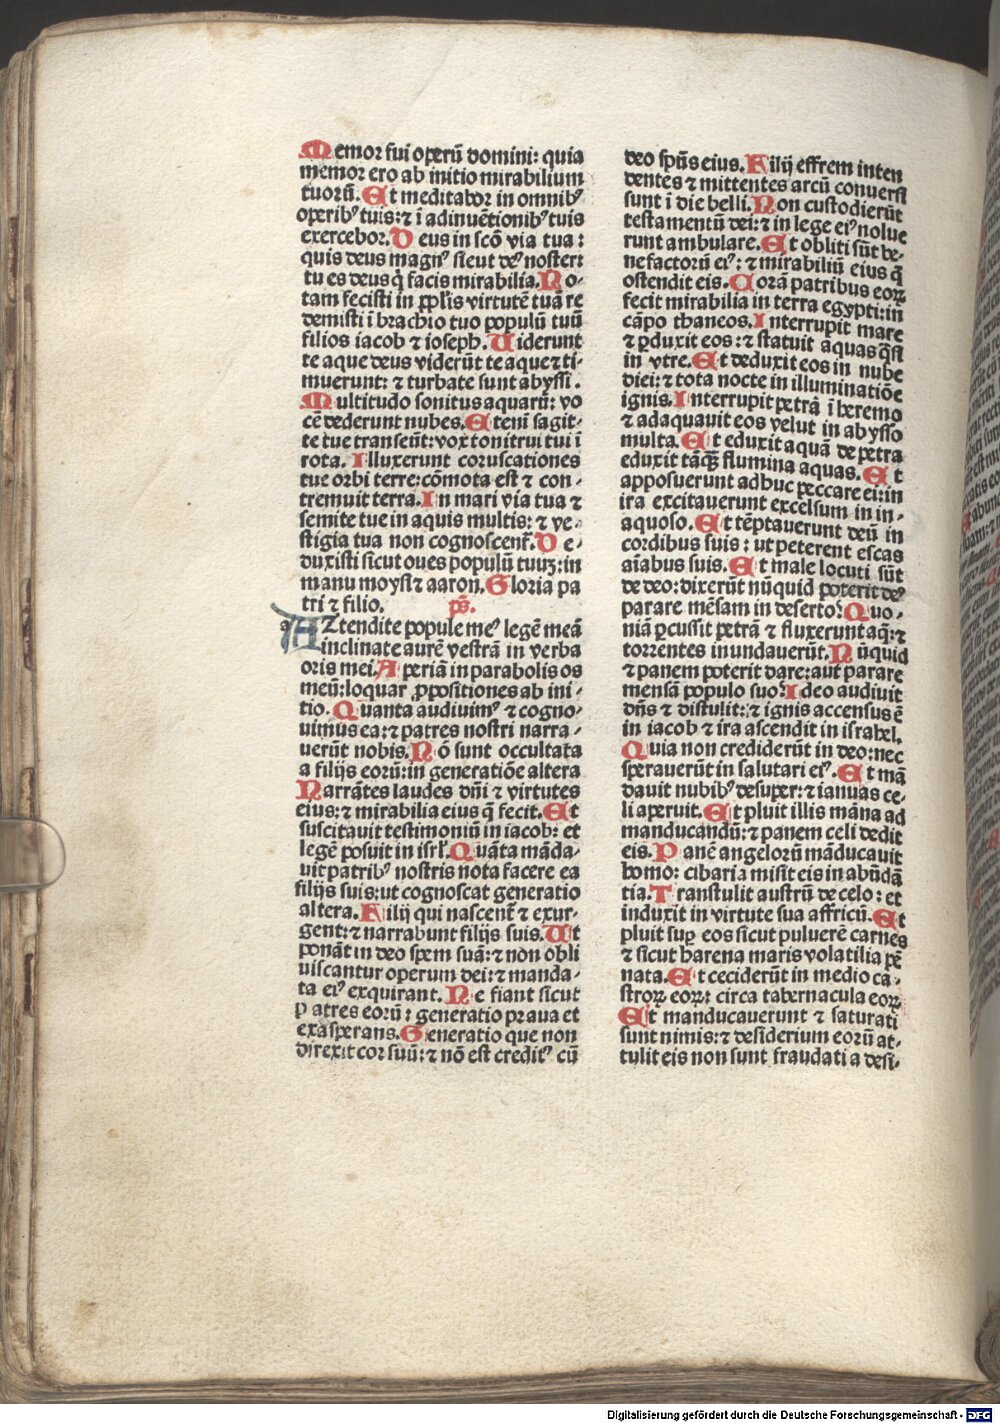 Memor fui operū domini: quia
memor ero ab initio mirabilium
tuorū. Et meditabor in omnibꝰ
operibꝰ tuis: ⁊ ī adinuētionibꝰ tuis
exercebor. Deus in scō via tua:
quis deus magnꝰ sicut deꝰ noster:
tu es deus q̄ facis mirabilia. No-
tam fecisti in ppl̄is virtutē tuā re
demisti ī brachio tuo populū tuū
filios iacob ⁊ ioseph. Uiderunt
te aque deus viderūt te aque ⁊ ti-
muerunt: ⁊ turbate sunt abyssi.
Multitudo sonitus aquarū: vo
cē dederunt nubes. Etenī sagit-
te tue transeūt: vox tonitrui tui ī
rota. Illuxerunt coruscationes
tue orbi terre: cōmota est ⁊ con-
tremuit terra. In mari via tua ⁊
semite tue in aquis multis: ⁊ ve-
stigia tua non cognoscent̄. De-
duxisti sicut oues populū tuuꝫ: in
manu moysi ⁊ aaron. Gloria pa
tri ⁊ filio. ps̄.
ATtendite popule meꝰ legē meā
inclinate aurē vestrā in verba
oris mei. Aperiā in parabolis os
meū: loquar ꝓpositiones ab ini-
tio. Quanta audiuimꝰ ⁊ cogno-
uimus ea: ⁊ patres nostri narra-
uerūt nobis. Nō sunt occultata
a filijs eorū: in generatiōe altera
Narrātes laudes dn̄i ⁊ virtutes
eius: ⁊ mirabilia eius q̄ fecit. Et
suscitauit testimoniū in iacob: et
legē posuit in isrl̄. Quāta māda-
uit patribꝰ nostris nota facere ea
filijs suis: ut cognoscat generatio
altera. Filij qui nascent̄ ⁊ exur-
gent: ⁊ narrabunt filijs suis. Ut
ponāt in deo spem suā: ⁊ non obli
uiscantur operum dei: ⁊ manda-
ta eiꝰ exquirant. Ne fiant sicut
patres eorū: generatio praua et
exasperans. Generatio que non
direxit cor suū: ⁊ nō est creditꝰ cū
deo spūs eius. Filij effrem inten
dentes ⁊ mittentes arcū conuersi
sunt ī die belli. Non custodierūt
testamentū dei: ⁊ in lege eiꝰ nolue
runt ambulare. Et obliti sūt be-
nefactorū eiꝰ: ⁊ mirabiliū eius q̄
ostendit eis. Corā patribus eoꝝ
fecit mirabilia in terra egypti: in
cāpo thaneos. Interrupit mare
⁊ ꝑduxit eos: ⁊ statuit aquas q̄si
in vtre. Et deduxit eos in nube
diei: ⁊ tota nocte in illuminatiōe
ignis. Interrupit petrā ī heremo
⁊ adaquauit eos velut in abysso
multa. Et eduxit aquā de petra
eduxit tāqꝫ flumina aquas. Et
apposuerunt adhuc peccare ei: in
ira excitauerunt excelsum in in-
aquoso. Et tēptauerunt deū in
cordibus suis: ut peterent escas
aīabus suis. Et male locuti sūt
de deo: dixerūt nūquid poterit deꝰ
parare mēsam in deserto? Quo-
niā ꝑcussit petrā ⁊ fluxerunt aq̄: ⁊
torrentes inundauerūt. Nūquid
⁊ panem poterit dare: aut parare
mensā populo suo? Ideo audiuit
dn̄s ⁊ distulit: ⁊ ignis accensus ē
in iacob ⁊ ira ascendit in israhel.
Quia non crediderūt in deo: nec
sperauerūt in salutari eiꝰ. Et mā
dauit nubibꝰ desuper: ⁊ ianuas ce-
li aperuit. Et pluit illis māna ad
manducandū: ⁊ panem celi dedit
eis. Panē angelorū māducauit
homo: cibaria misit eis in abūdā
tia. Transtulit austrū de celo: et
induxit in virtute sua affricū. Et
pluit suꝑ eos sicut puluerē carnes
⁊ sicut harena maris volatilia pē
nata. Et ceciderūt in medio ca-
stroꝝ eoꝝ: circa tabernacula eoꝝ
Et manducauerunt ⁊ saturati
sunt nimis: ⁊ desiderium eorū at-
tulit eis non sunt fraudati a desi-
Digitalisierung gefördert durch die Deutsche Forschungsgemeinschaft - DFG